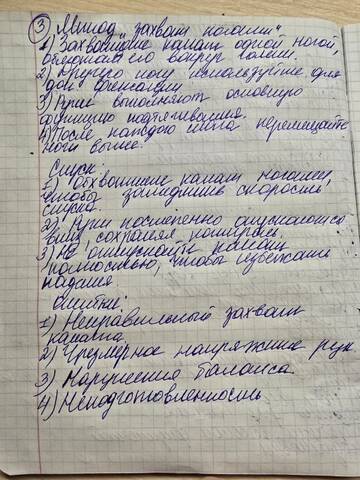 ③ Метод „захват ногами"
1) Захватите канат одной ногой,
обернав его вокруг голени.
2) Другую ногу используйте для
доп. фиксации
3) Руки выполняют основную
функцию подтягивания.
4) После каждого шага перемещайте
ноги выше.
Спуск:
1) Обхватите канат ногами,
чтобы замедлить скорость
спуска.
2) Руки постепенно опускаются
вниз, сохраняя контроль
3) Не отпускайте канат
полностью, чтобы избежать
падения
ошибки:
1) Неправильный захват
каната
2) Чрезмерное напряжение рук
3) Нарушения баланса
4) Неподготовленность